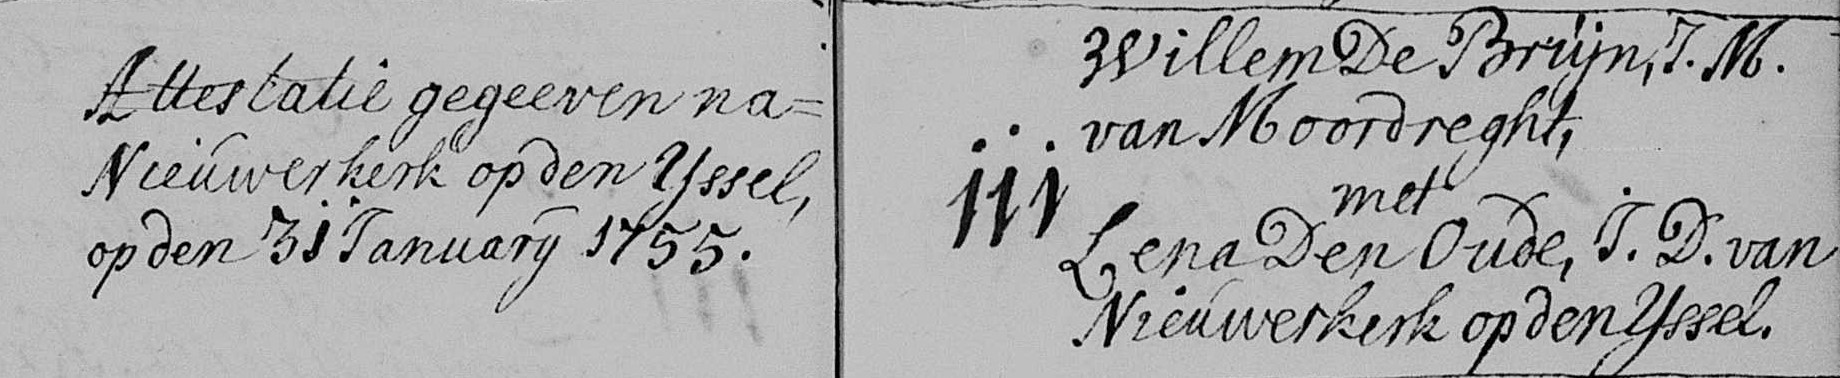 Attestatie gegeeven na=
Nieuwerkerk op den Yssel,
op den 31 January 1755.
Willem De Bruijn, J. M.
van Moordreght,
met
Lena Den Oude, J. D. van
Nieuwerkerk op den Yssel.